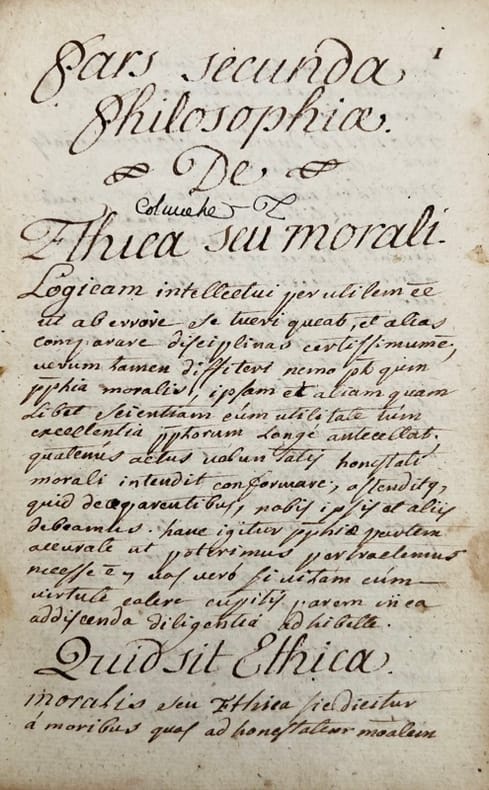 1
Pars secunda
Philosophiæ.
De
Ethica seu morali.
Logicam intellectui perutilem ēē
ut ab errore se tueri queat, et alias
comparare disciplinas certissimum ē,
verum tamen diffiteri nemo pt quin
pphia moralis, ipsam et aliam quam
libet scientiam cum utilitate tùm
excellentia pptorum longè antecellat,
quatenus actus voluntatis honestati
morali intendit conformare, ostenditq,
quid deo, parentibus, nobis ipsis et aliis
debeamus. hanc igitur pphiæ partem
accurate ut poterimus pertractemus
necesse ē, vos verò si vitam cùm
virtute colere cupitis parem in ea
addiscenda diligentia adhibete.
Quid sit Ethica.
moralis seu Ethica sic dicitur
á moribus quos ad honestatem moalem